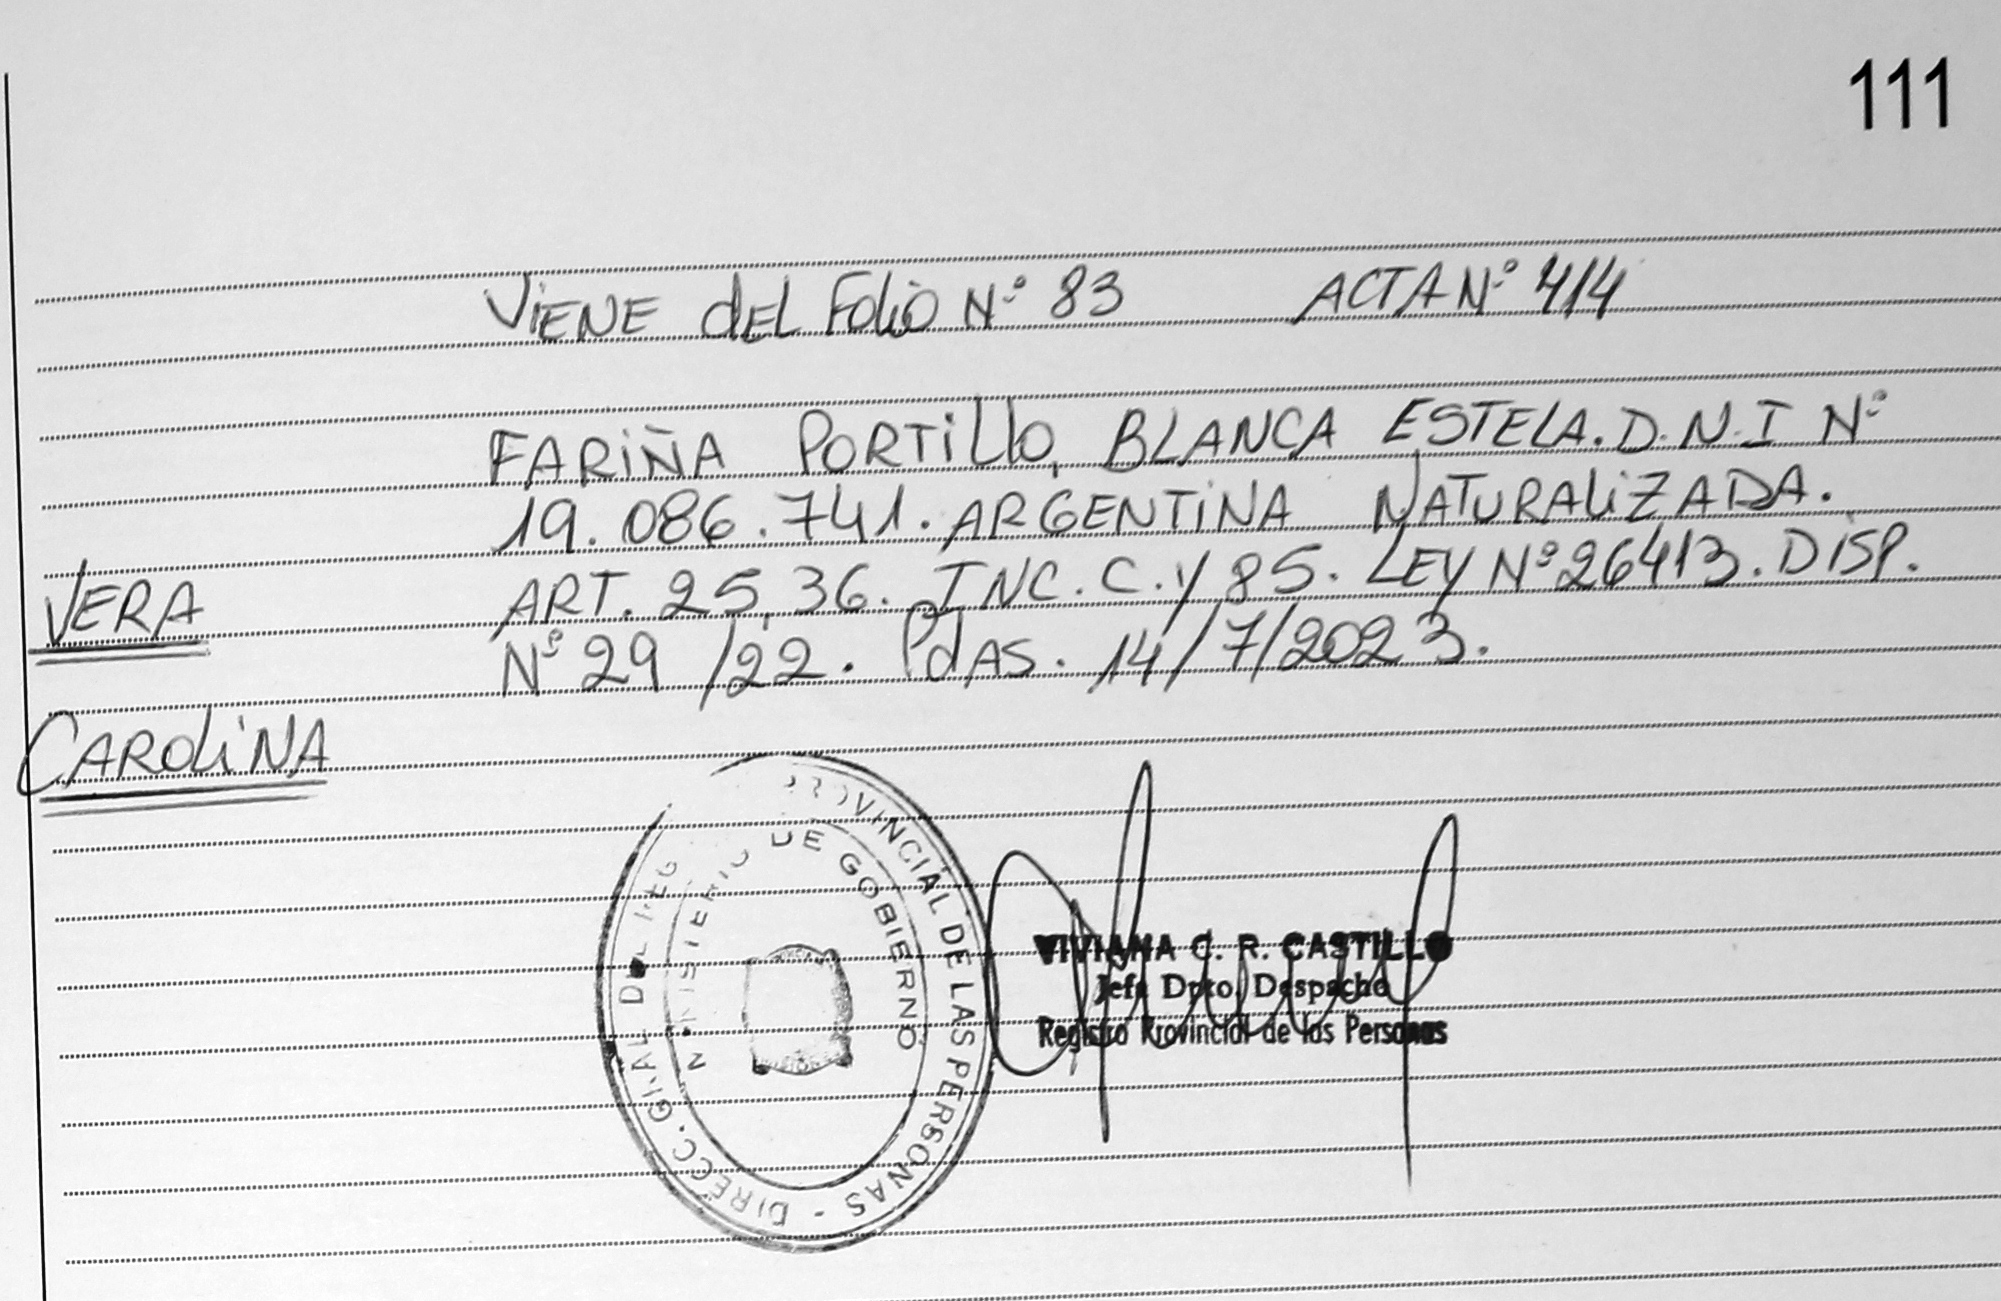 111
ViENE dEL FoLio Nº 83 ACTA Nº 414
FARiÑA PORTiLLo, BLANCA ESTELA. D.N.I Nº
19.086.741. ARGENTiNA NATURALiZADA.
VERA
ART. 25, 36. INC. C. y 85. LEY Nº 26413. DiSP.
Nº 29/22. PdAS. 14/7/2023.
CAROLiNA
PROVINCIAL DE LAS PERSONAS - DIRECC. GRAL DEL REG
MINISTERIO DE GOBIERNO
VIVIANA C. R. CASTILLO
Jefe Dpto. Despacho
Registro Provincial de las Personas